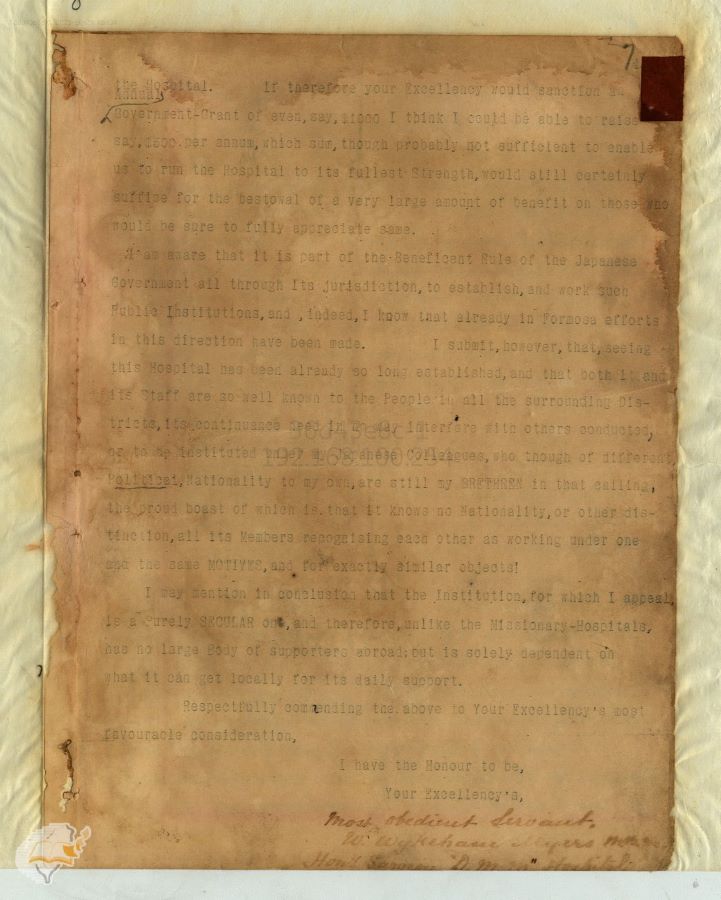 7
the Hospital. If therefore your Excellency would sanction an
Annual
Government-Grant of even, say, $1000 I think I could be able to raise
say, $500 per annum, which sum, though probably not sufficient to enable
us to run the Hospital to its fullest Strength, would still certainly
suffice for the bestowal of a very large amount of benefit on those who
would be sure to fully appreciate same.
I am aware that it is part of the Beneficent Rule of the Japanese
Government all through its jurisdiction, to establish, and work such
Public Institutions, and , indeed, I know that already in Formosa efforts
in this direction have been made. I submit, however, that, seeing
this Hospital has been already so long established, and that both it and
its Staff are so well known to the People in all the surrounding Dis-
tricts, its continuance need in no way interfere with others conducted,
or to be instituted under my Japanese Colleagues, who though of different
Political, Nationality to my own, are still my BRETHREN in that calling,
the proud boast of which is that it knows no Nationality, or other dis-
tinction, all its Members recognising each other as working under one
and the same MOTIVES, and for exactly similar objects!
I may mention in conclusion that the Institution, for which I appeal,
is a Purely SECULAR one, and therefore, unlike the Missionary-Hospitals,
has no large Body of supporters abroad; but is solely dependent on
what it can get locally for its daily support.
Respectfully commending the above to Your Excellency's most
favourable consideration,
I have the Honour to be,
Your Excellency's,
most obedient Servant,
W. Wykeham Myers
Hon. Surgeon "D. M. M" Hospital